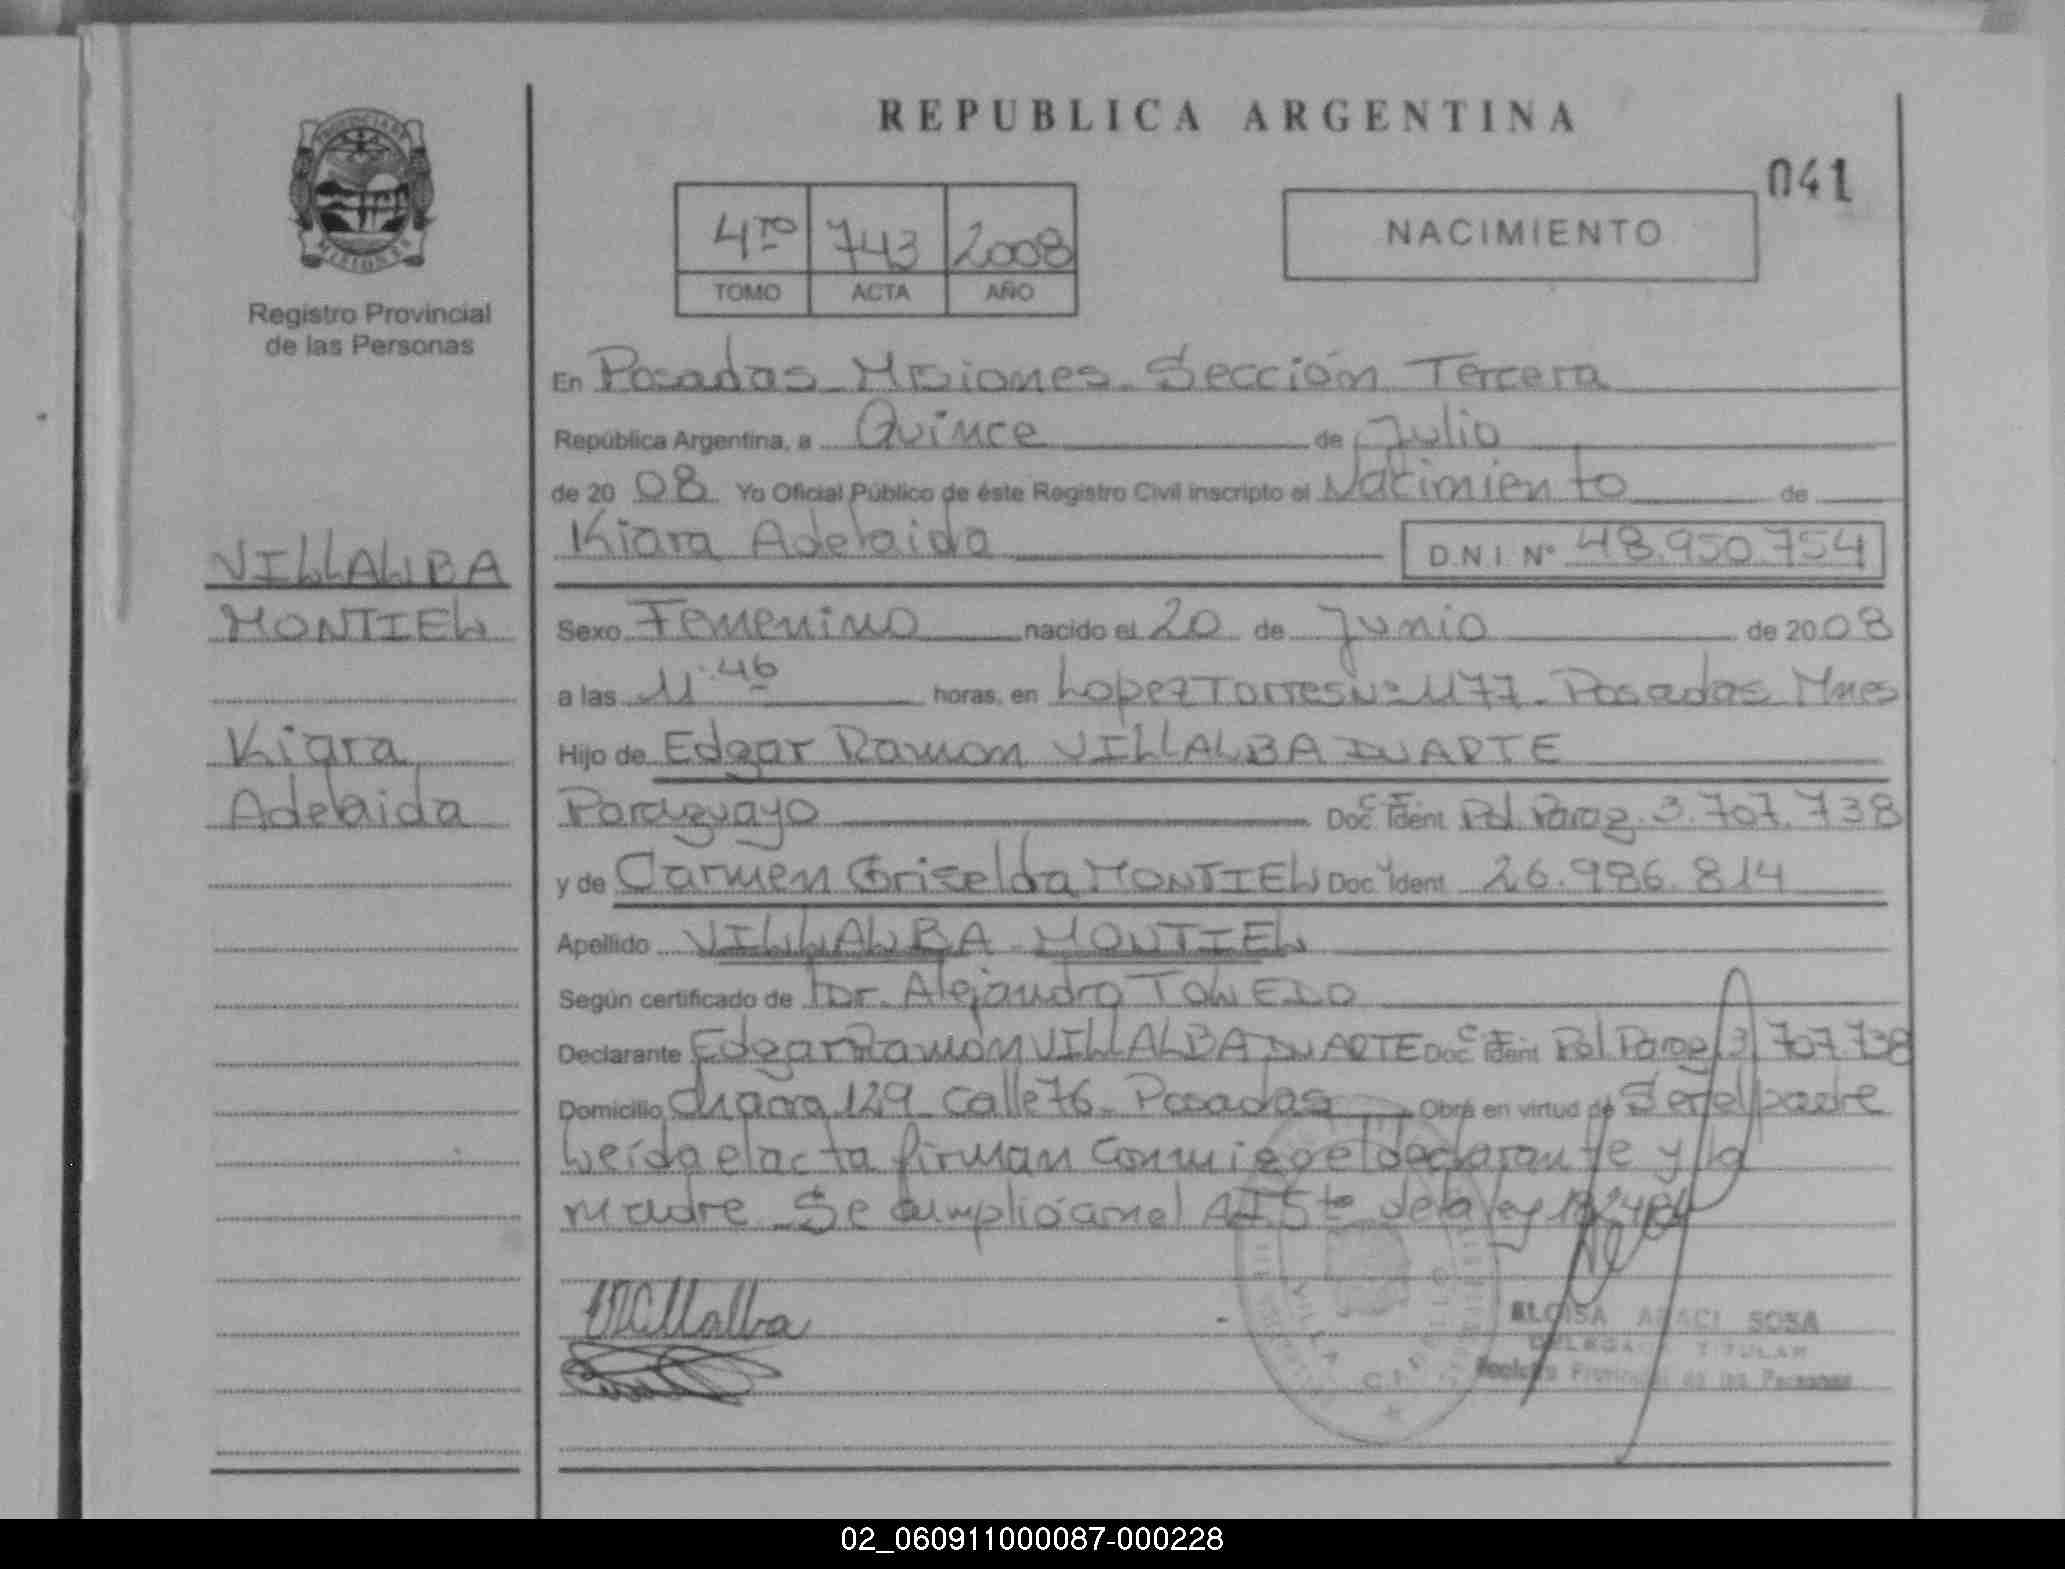 REPUBLICA ARGENTINA
041
4TO 743 2008
TOMO ACTA AÑO
NACIMIENTO
PROVINCIA DE
MISIONES
Registro Provincial
de las Personas
En Posadas Misiones. Sección Tercera
República Argentina, a Quince de Julio
de 20 08 Yo Oficial Público de éste Registro Civil inscripto el Nacimiento de
Kiara Adelaida D.N.I. Nº 48.950.754
VILLALBA
MONTIEL
Kiara
Adelaida
Sexo Femenino nacido el 20 de Junio de 20 08
a las 11.46 horas, en Lopez Torres Nº 1177. Posadas Mnes
Hijo de Edgar Ramon VILLALBA DUARTE
Paraguayo Doc. Ident. Pol. Parag. 3.707.738
y de Carmen Griselda MONTIEL Doc. Ident. 26.986.814
Apellido VILLALBA MONTIEL
Según certificado de Dr. Alejandro TOLEDO
Declarante Edgar Ramón VILLALBA DUARTE Doc. Ident. Pol. Parag. 3.707.738
Domicilio Chacra 129 Calle 76. Posadas Obra en virtud de Ser el padre
Leída el acta firman conmigo el declarante y la
madre. Se cumplió con el Art 5to de la ley
Villalba
VILLA CABELLO
ELOISA ARACI SOSA
DELEGADA TITULAR
Registro Provincial de las Personas
02_060911000087-000228